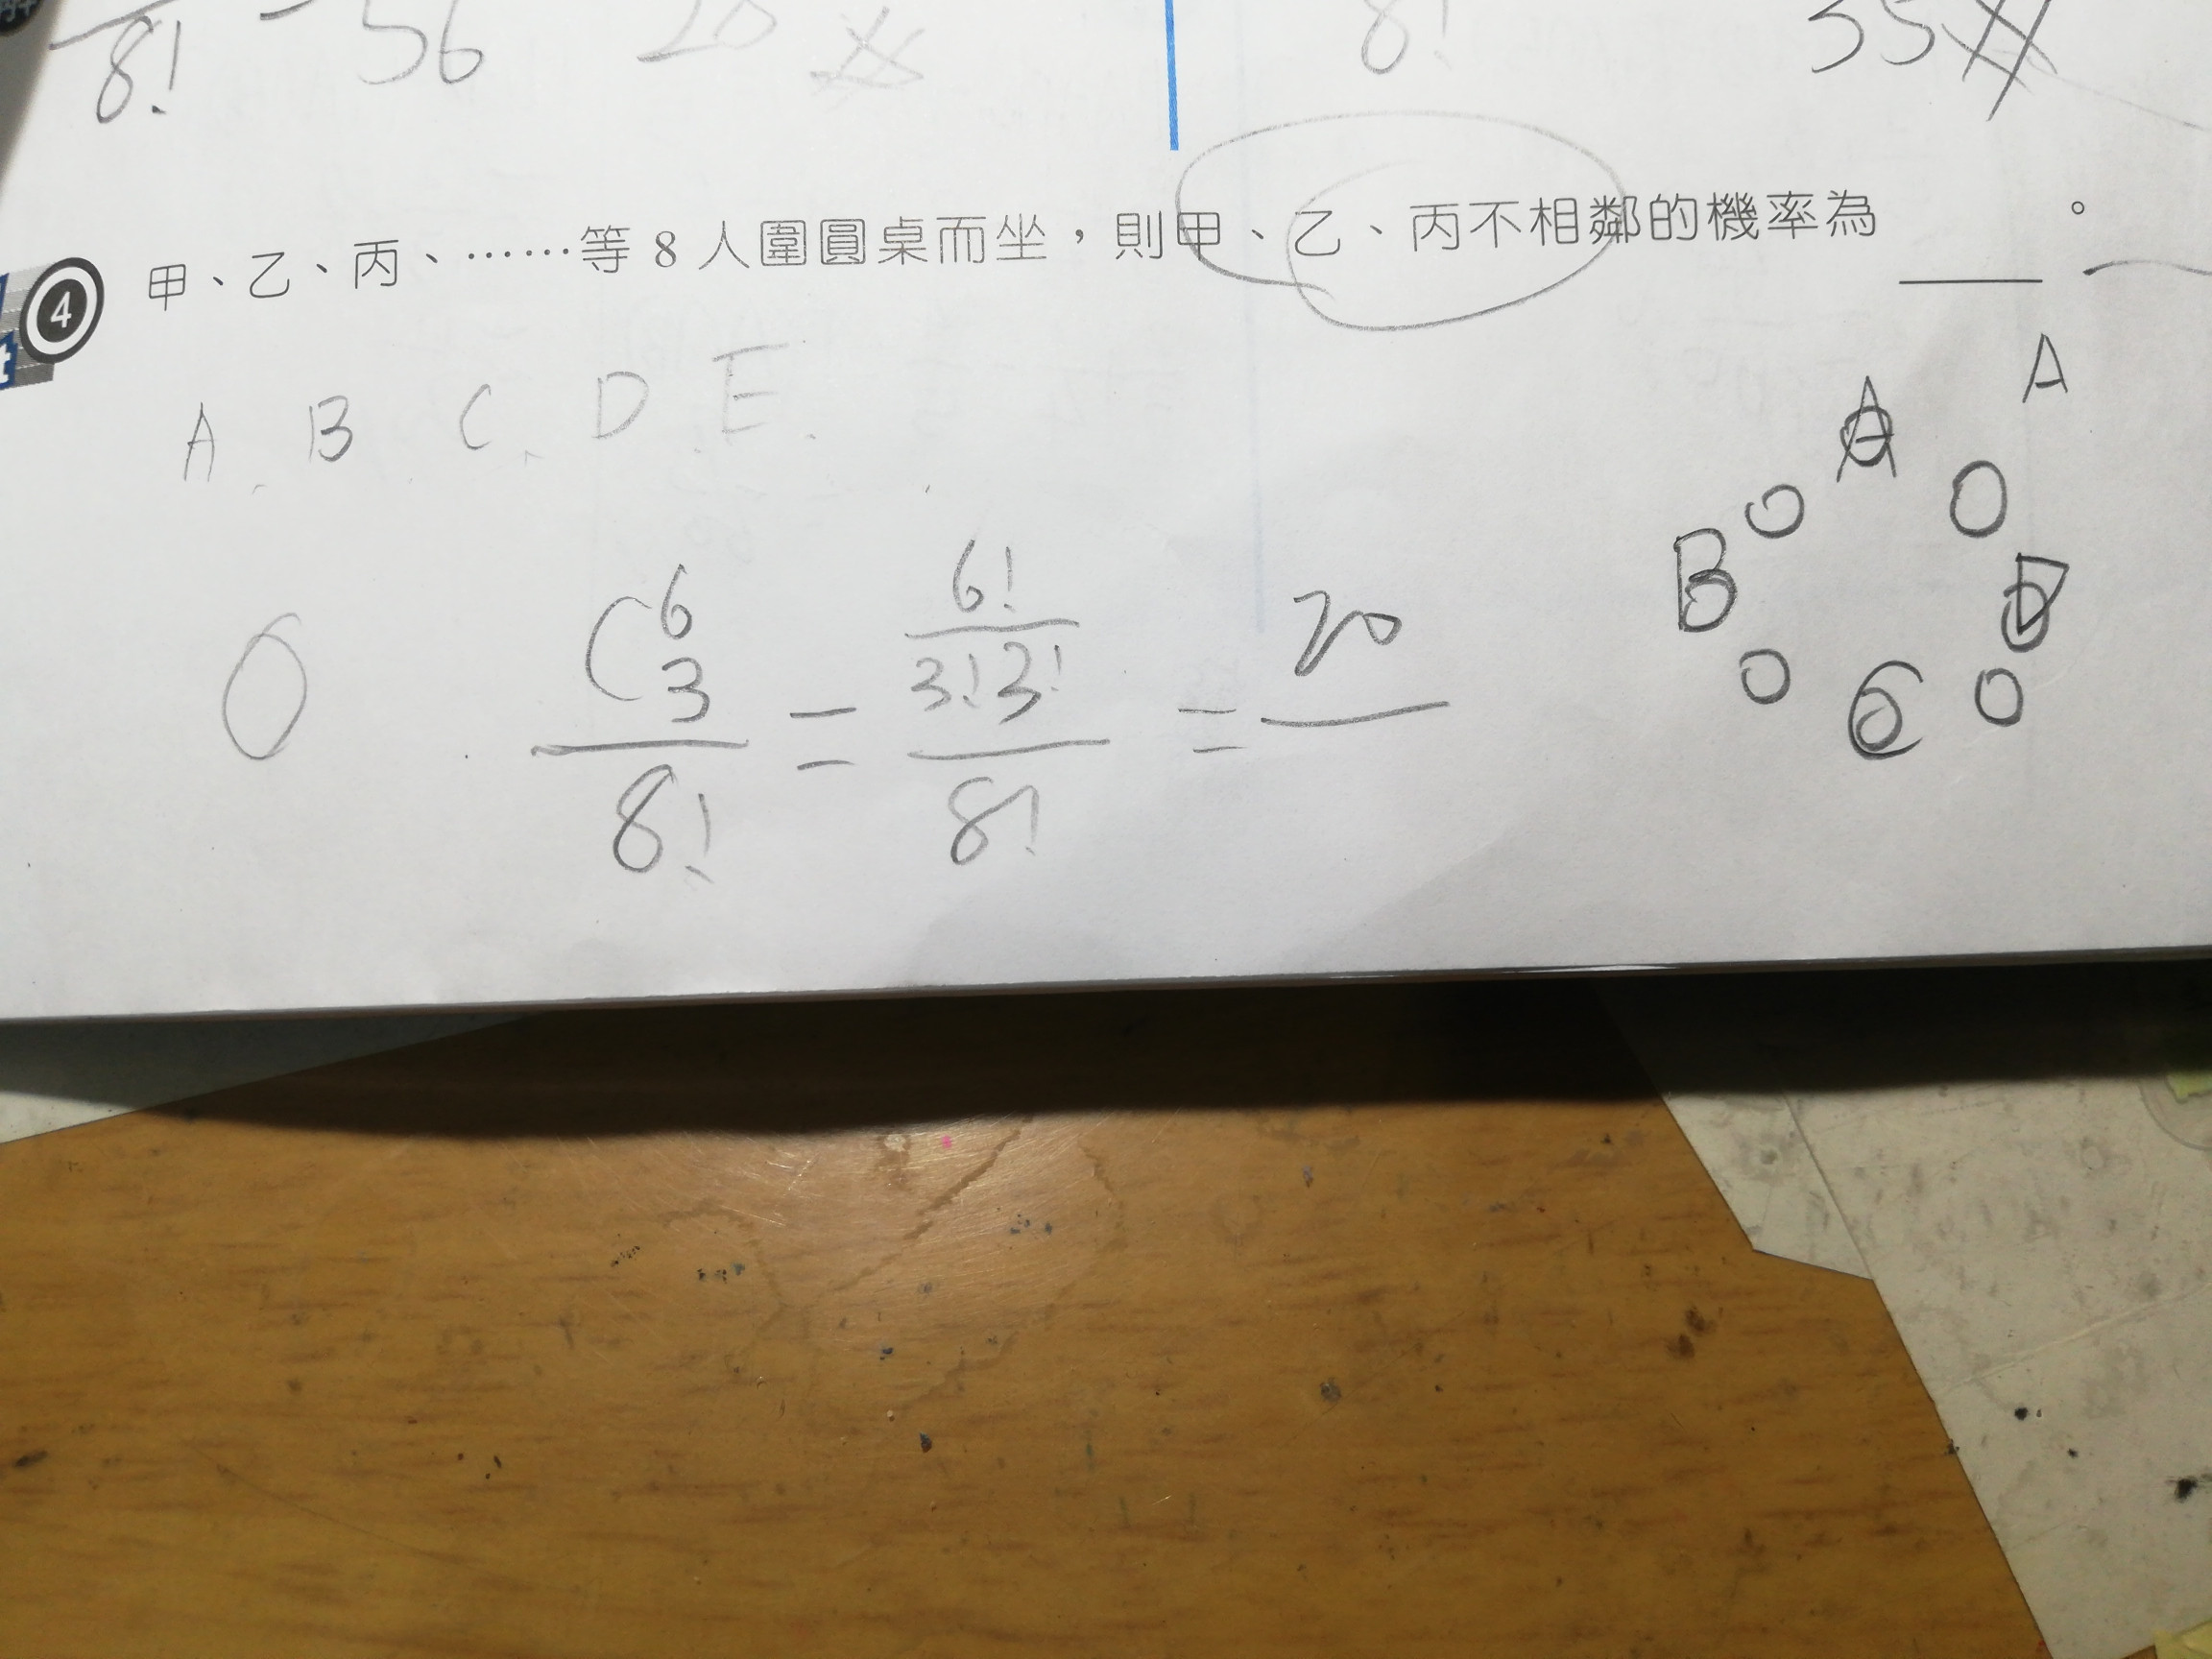 8! 56 28
8! 35
4 甲、乙、丙、……等 8 人圍圓桌而坐，則甲、乙、丙不相鄰的機率為____。
A. B C. D. E.
A A
B D
C
C 6 3 / 8! = 6! / 3! 3! / 8! = 20